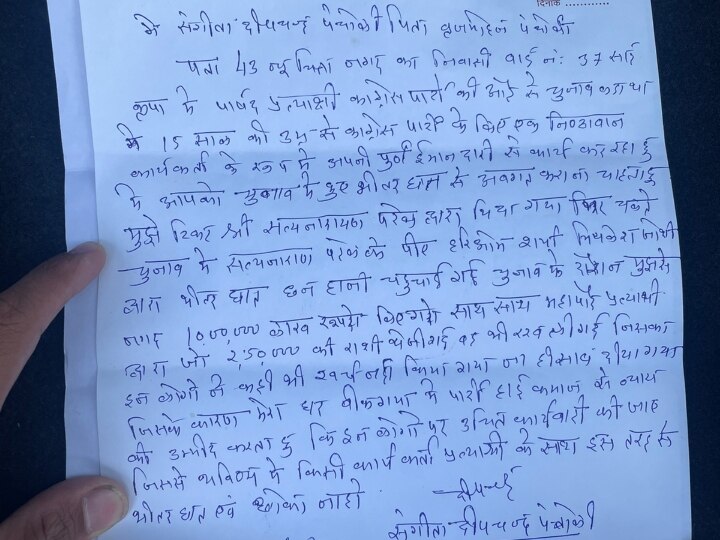 दिनांक ............
मे संगीता दीपचन्द पंचोली पिता बृजमोहन पंचोली
पता 43 न्यु चिता नगद का निवासी वार्ड नं: 37 साई
कृपा मे पार्षद प्रत्याशी कांग्रेस पार्टी की ओर से चुनाव लडा था
मे 15 साल की उम्र से कांग्रेस पार्टी के लिए एक निष्ठावान
कार्यकर्ता के रूप मे अपनी पुर्ण ईमानदारी से कार्य कर रहा हु
मे आपको चुनाव मे हुए भीतर घात से अवगत कराना चाहता हु
मुझे टिकट श्री सत्यनारायण पटेल द्वारा दिया गया जिसके चलते
चुनाव मे सत्यनारायण पटेल के पीए हरिओम शर्मा मिथलेश जोशी
द्वारा भीतर घात छन हानी पहुचाई गई चुनाव के दौरान मुझसे
नगद 10,00,000 लाख रूपये लिए गये साथ साथ महापौर प्रत्याशी
द्वारा जो 2,50,000 की राशी भेजी गई वह भी रख ली गई जिसका
इन लोगो ने कही भी खर्च नही किया गया ना हीसाब दीया गया
जिसके कारण मेरा घर बीक गया मे पार्टी हाई कमान से न्याय
की उम्मीद करता हु कि इन लोगो पर उचित कार्यवाही की जाए
जिससे भविष्य मे किसी कार्यकर्ता प्रत्याशी के साथ इस तरह से
भीतर घात एवं धोका नाहो
संगीता दीपचन्द पंचोली